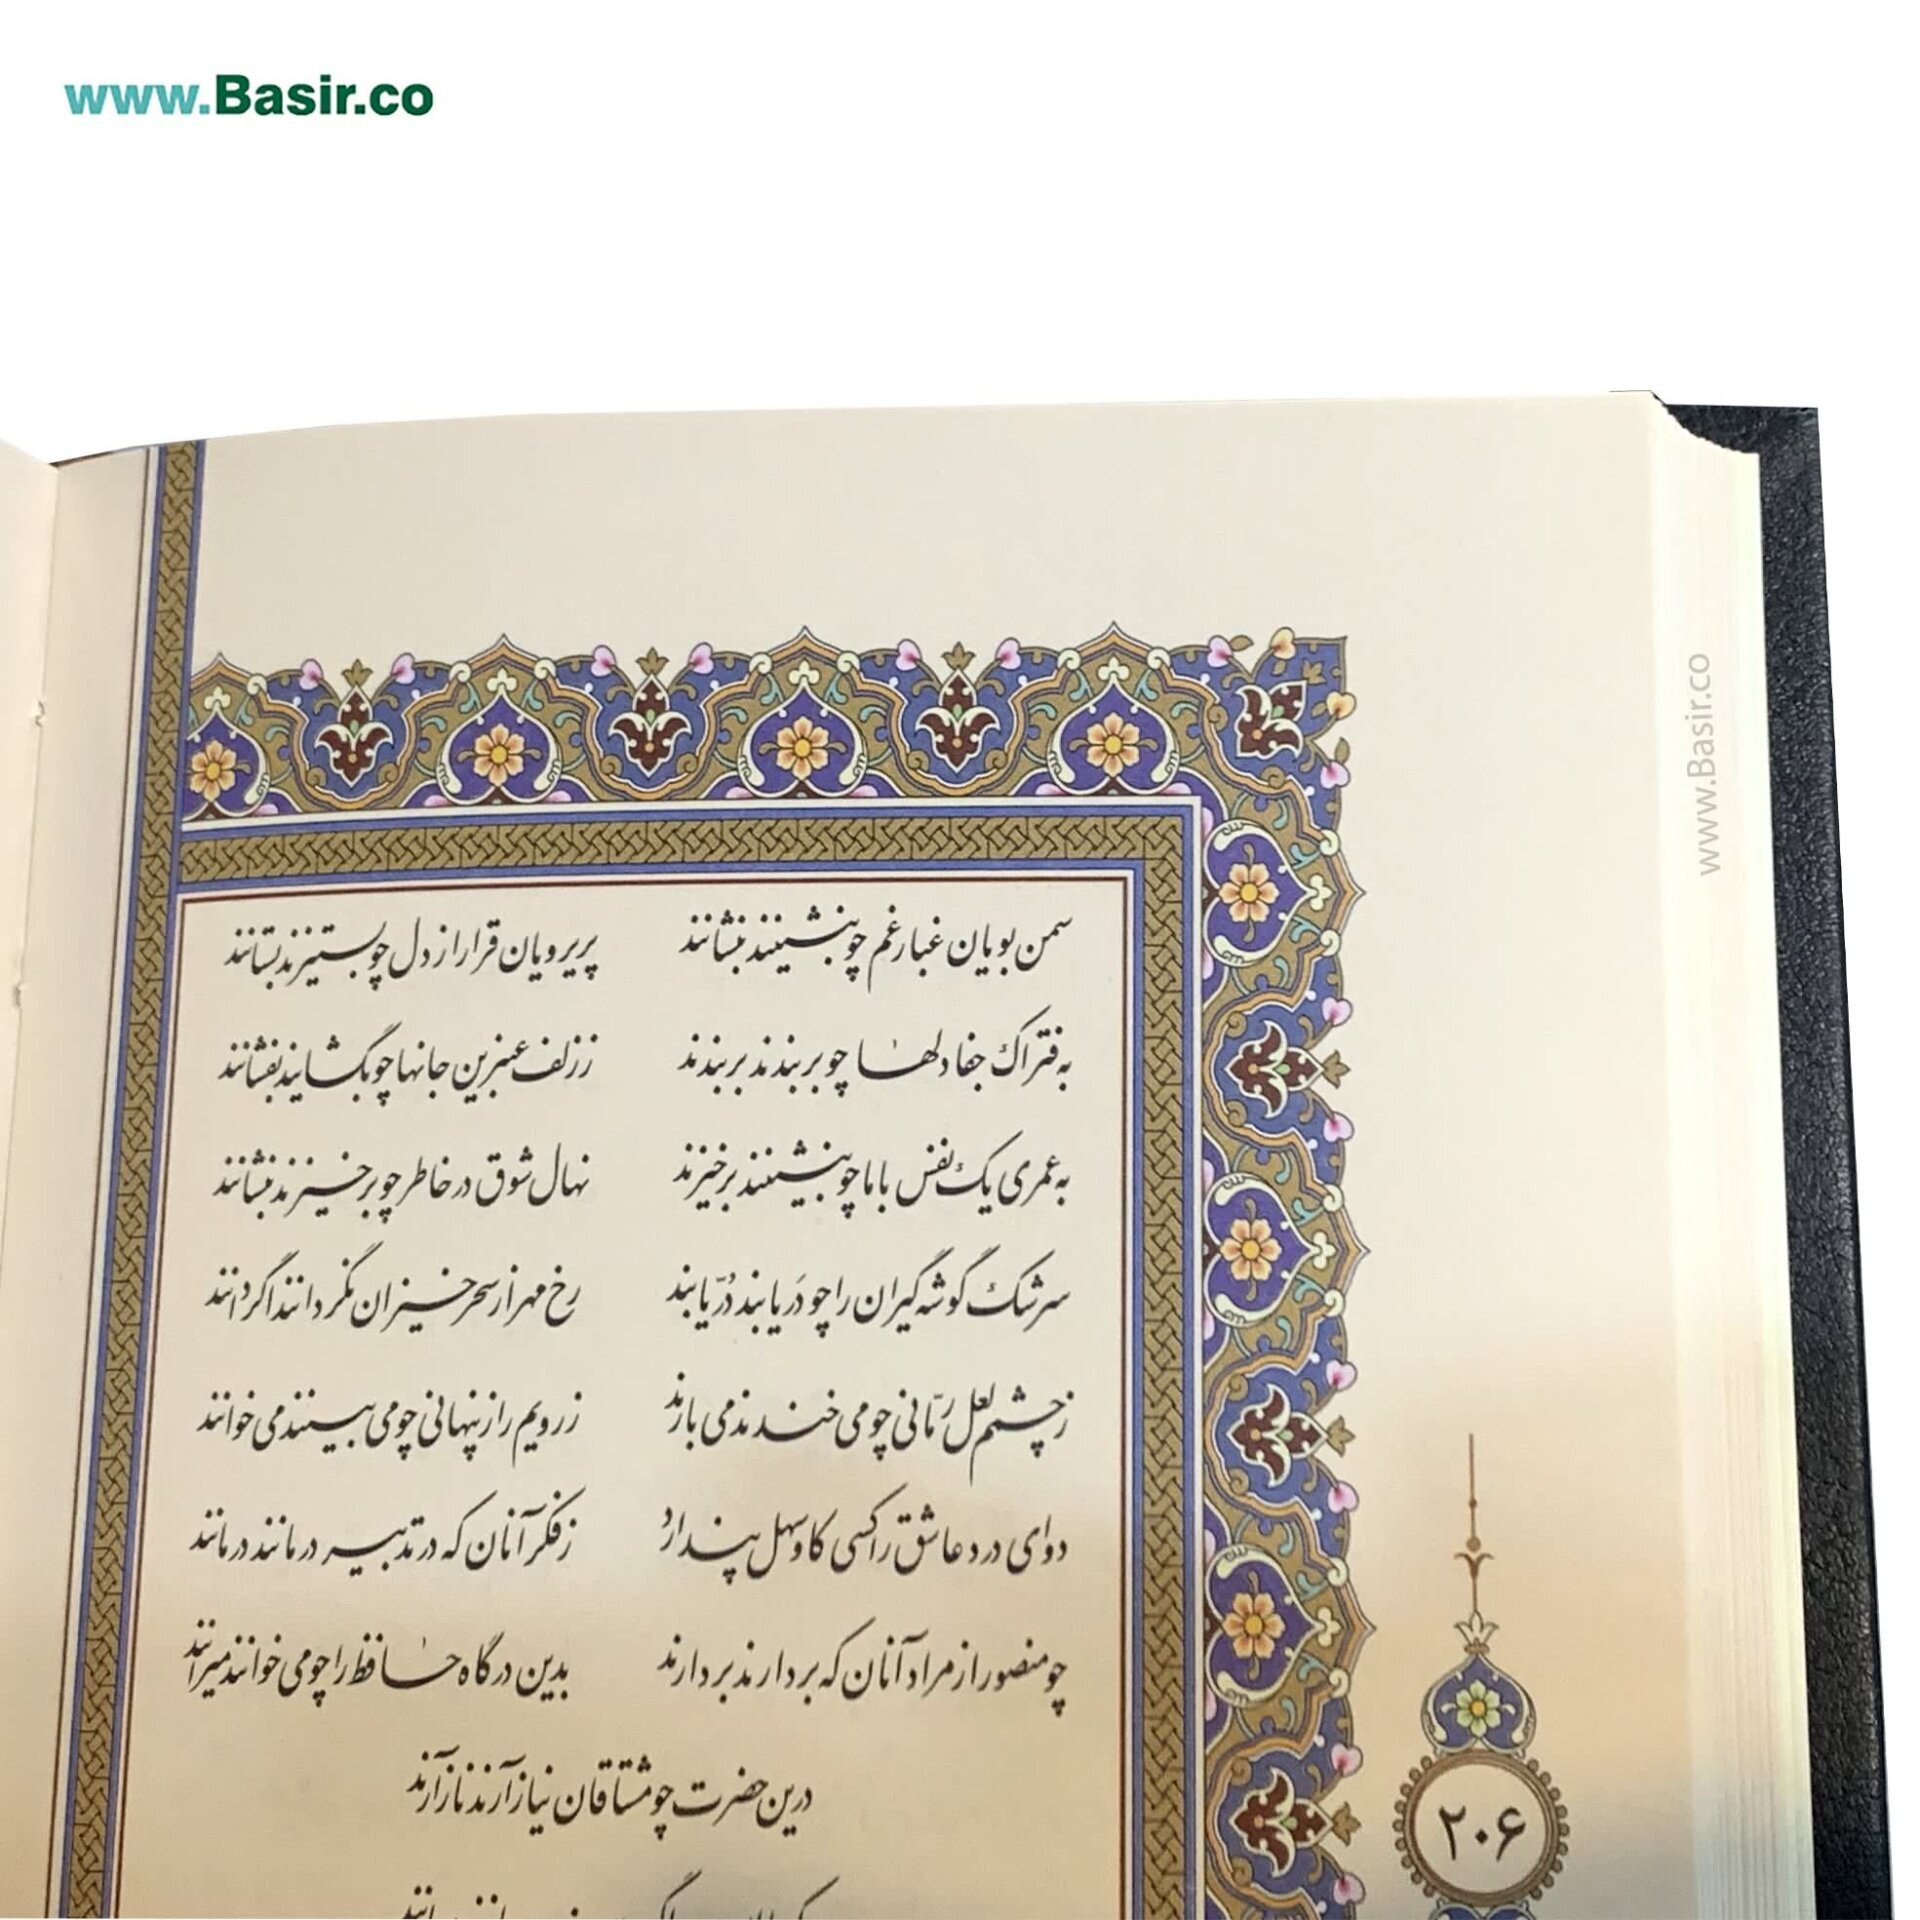 www.Basir.co
سمن بویان غبار غم چو بنشینند بنشانند پریرویان قرار از دل چو بستیزند بستانند
به فتراک جفا دلها چو بربندند بربندند ز زلف عنبرین جانها چو بگشایند بفشانند
به عمری یک نفس با ما چو بنشینند برخیزند نهال شوق در خاطر چو برخیزند بنشانند
سرشک گوشه گیران را چو دَریابند دُرّ یابند رخ مهر از سحرخیزان نگردانند اگر دانند
ز چشمم لعل رمّانی چو می خندند می بارند ز رویم راز پنهانی چو می بینند می خوانند
دوای درد عاشق را کسی کاو سهل پندارد ز فکر آنان که در تدبیر درمانند در مانند
چو منصور از مراد آنان که بردارند بردارند بدین درگاه حافظ را چو می خوانند میرانند
درین حضرت چو مشتاقان نیاز آرند ناز آرند
۲۰۶
www.Basir.co